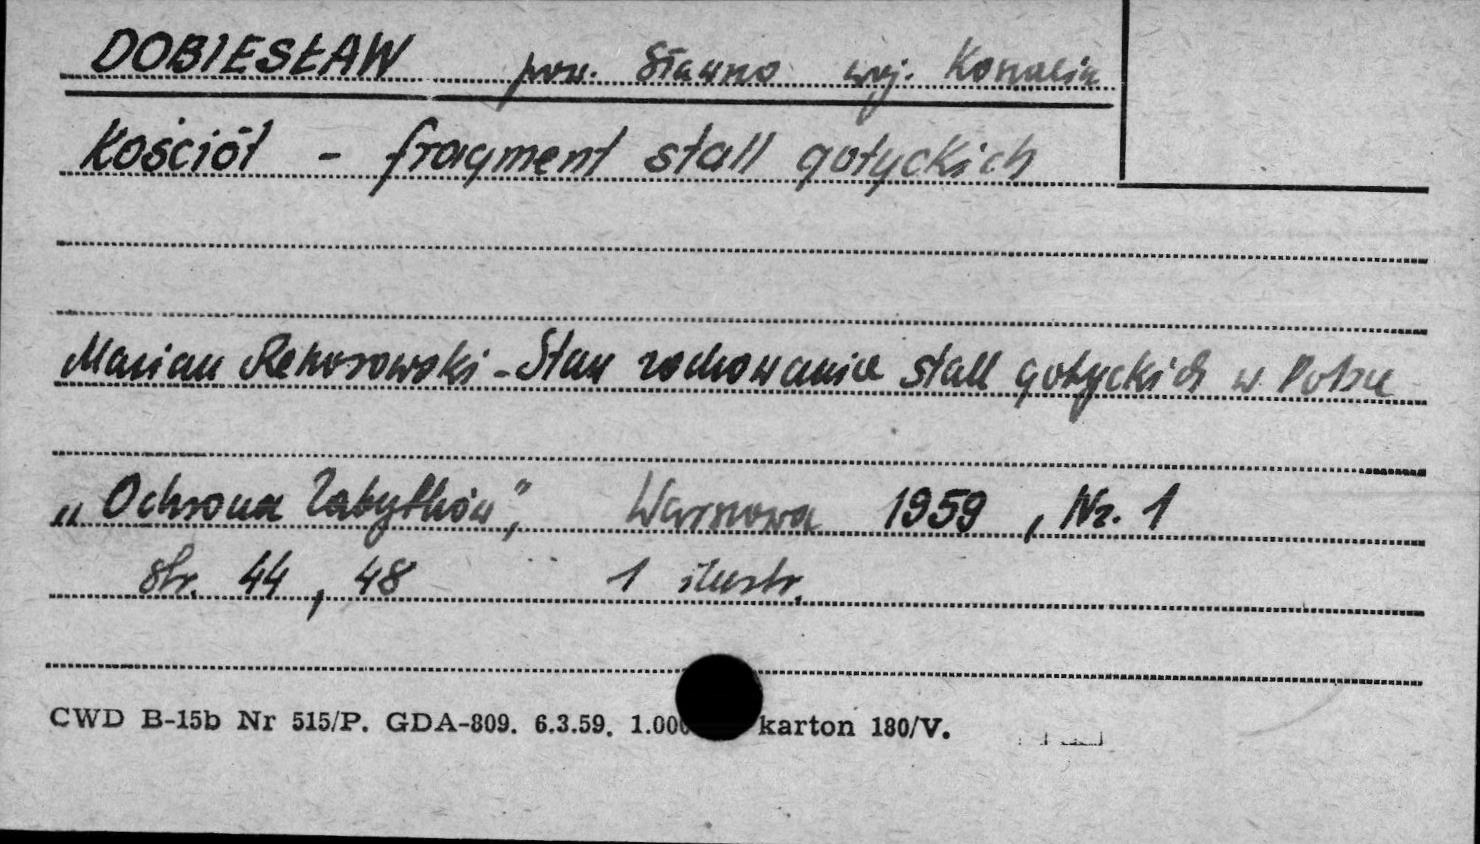 DOBIESŁAW pow. Sławno woj. Koszalin
Kościół - fragment stall gotyckich
Marian Rehorowski - Stan zachowania stall gotyckich w Polsce
„Ochrona Zabytków", Warszawa 1959, Nr. 1
str. 44, 48 1 ilustr.
CWD B-15b Nr 515/P. GDA-809. 6.3.59. 1.000 karton 180/V.